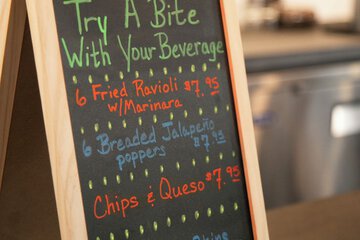 Try A Bite
With Your Beverage
6 Fried Ravioli $7.95
w/Marinara
6 Breaded Jalapeño
poppers $7.95
Chips & Queso $7.95